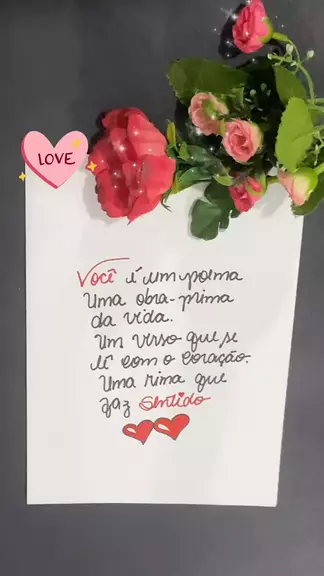 LOVE
Você é um poema
Uma obra-prima
da vida.
Um verso que se
lê com o coração.
Uma rima que
faz Sentido